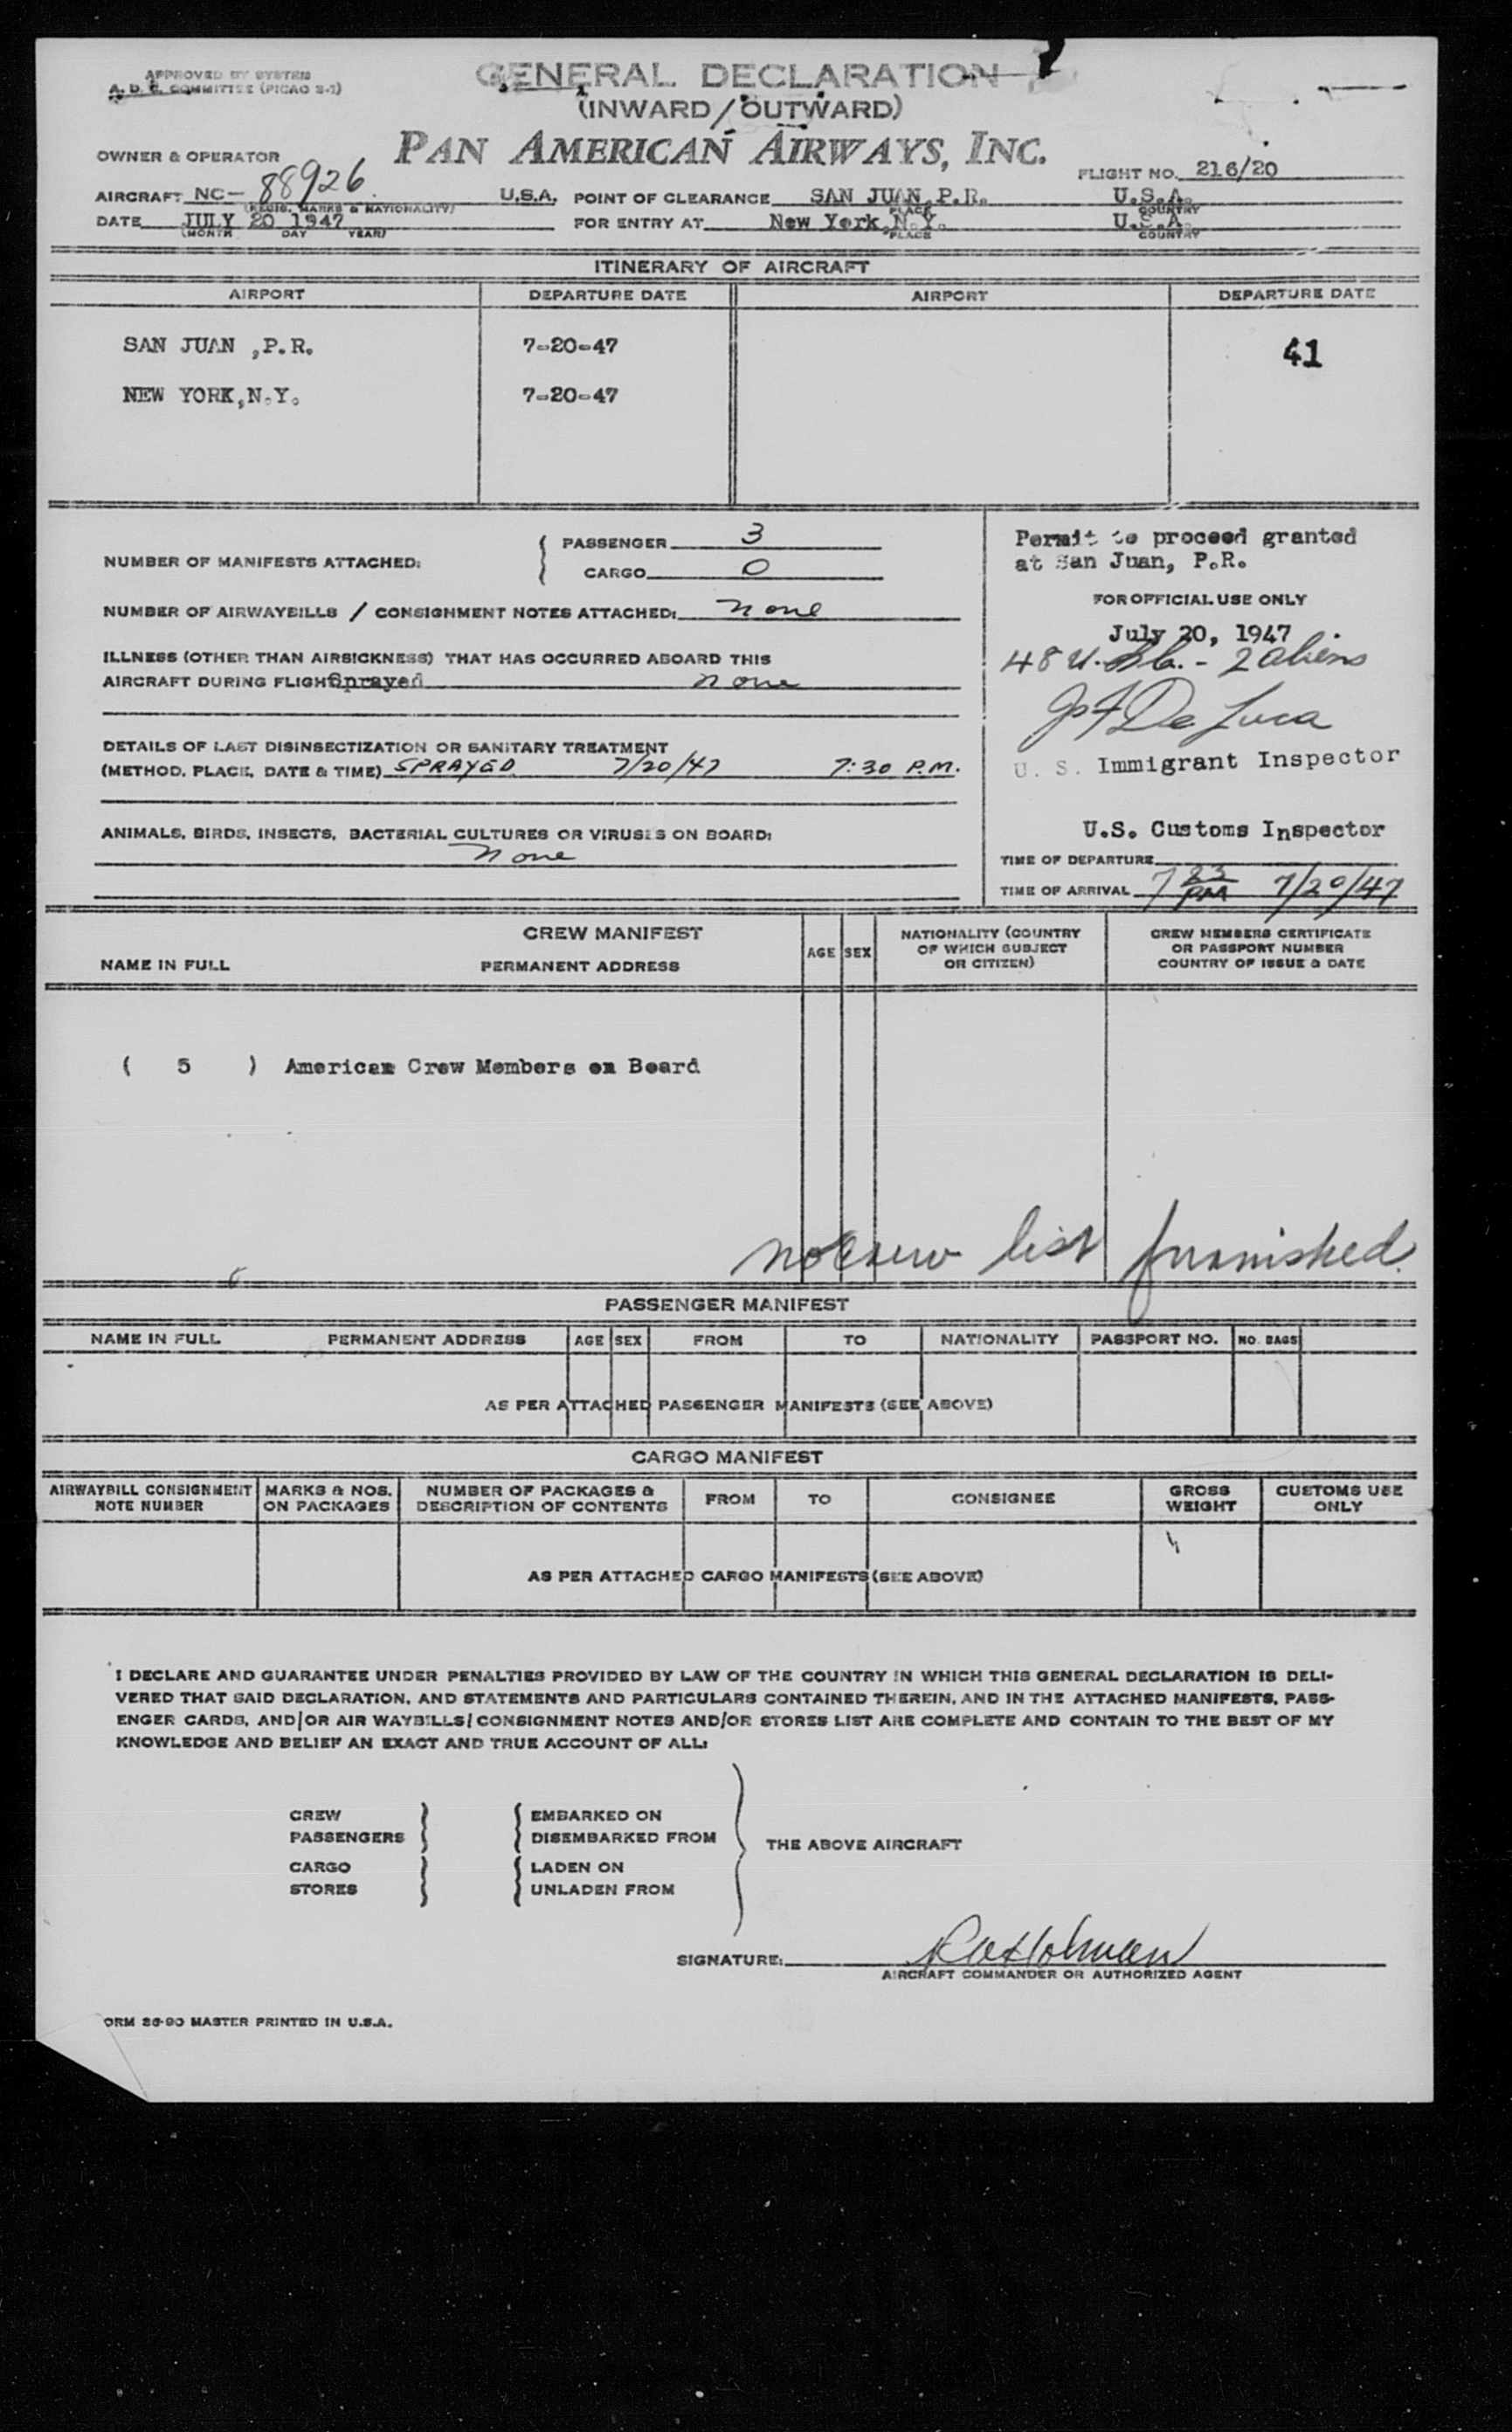 APPROVED BY SYSTEM
A. D. C. COMMITTEE (PICAO 2-1)
GENERAL DECLARATION
(INWARD/OUTWARD)
PAN AMERICAN AIRWAYS, INC.
OWNER & OPERATOR
FLIGHT NO. 216/20
AIRCRAFT NC- 88926 U.S.A. POINT OF CLEARANCE SAN JUAN,P.R. U.S.A.
(REGIS. MARKS & NATIONALITY) PLACE COUNTRY
DATE JULY 20 1947 FOR ENTRY AT New York,N.Y. U.S.A.
(MONTH DAY YEAR) PLACE COUNTRY
ITINERARY OF AIRCRAFT
AIRPORT DEPARTURE DATE AIRPORT DEPARTURE DATE
SAN JUAN ,P.R. 7-20-47 41
NEW YORK,N.Y. 7-20-47
NUMBER OF MANIFESTS ATTACHED: PASSENGER 3
CARGO 0
NUMBER OF AIRWAYBILLS / CONSIGNMENT NOTES ATTACHED: none
ILLNESS (OTHER THAN AIRSICKNESS) THAT HAS OCCURRED ABOARD THIS
AIRCRAFT DURING FLIGHT Sprayed none
DETAILS OF LAST DISINSECTIZATION OR SANITARY TREATMENT
(METHOD, PLACE, DATE & TIME) SPRAYED 7/20/47 7:30 P.M.
ANIMALS, BIRDS, INSECTS, BACTERIAL CULTURES OR VIRUSES ON BOARD:
none
Permit to proceed granted
at San Juan, P.R.
FOR OFFICIAL USE ONLY
July 20, 1947
48 U.S.C. - 2 aliens
De Luca
U. S. Immigrant Inspector
U.S. Customs Inspector
TIME OF DEPARTURE
TIME OF ARRIVAL 7 23 PM 7/20/47
CREW MANIFEST
NAME IN FULL PERMANENT ADDRESS AGE SEX NATIONALITY (COUNTRY OF WHICH SUBJECT OR CITIZEN) CREW MEMBERS CERTIFICATE OR PASSPORT NUMBER COUNTRY OF ISSUE & DATE
( 5 ) American Crew Members on Board
no crew list furnished.
PASSENGER MANIFEST
NAME IN FULL PERMANENT ADDRESS AGE SEX FROM TO NATIONALITY PASSPORT NO. NO. BAGS
AS PER ATTACHED PASSENGER MANIFESTS (SEE ABOVE)
CARGO MANIFEST
AIRWAYBILL CONSIGNMENT NOTE NUMBER MARKS & NOS. ON PACKAGES NUMBER OF PACKAGES & DESCRIPTION OF CONTENTS FROM TO CONSIGNEE GROSS WEIGHT CUSTOMS USE ONLY
AS PER ATTACHED CARGO MANIFESTS (SEE ABOVE)
I DECLARE AND GUARANTEE UNDER PENALTIES PROVIDED BY LAW OF THE COUNTRY IN WHICH THIS GENERAL DECLARATION IS DELI-
VERED THAT SAID DECLARATION, AND STATEMENTS AND PARTICULARS CONTAINED THEREIN, AND IN THE ATTACHED MANIFESTS, PASS-
ENGER CARDS, AND/OR AIR WAYBILLS/CONSIGNMENT NOTES AND/OR STORES LIST ARE COMPLETE AND CONTAIN TO THE BEST OF MY
KNOWLEDGE AND BELIEF AN EXACT AND TRUE ACCOUNT OF ALL:
CREW EMBARKED ON
PASSENGERS DISEMBARKED FROM
THE ABOVE AIRCRAFT
CARGO LADEN ON
STORES UNLADEN FROM
SIGNATURE:
AIRCRAFT COMMANDER OR AUTHORIZED AGENT
ORM 26-90 MASTER PRINTED IN U.S.A.